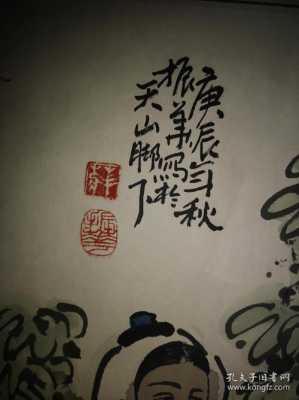 庚辰年秋
振华写於
天山脚下
孔夫子旧书网
book.kongfz.com